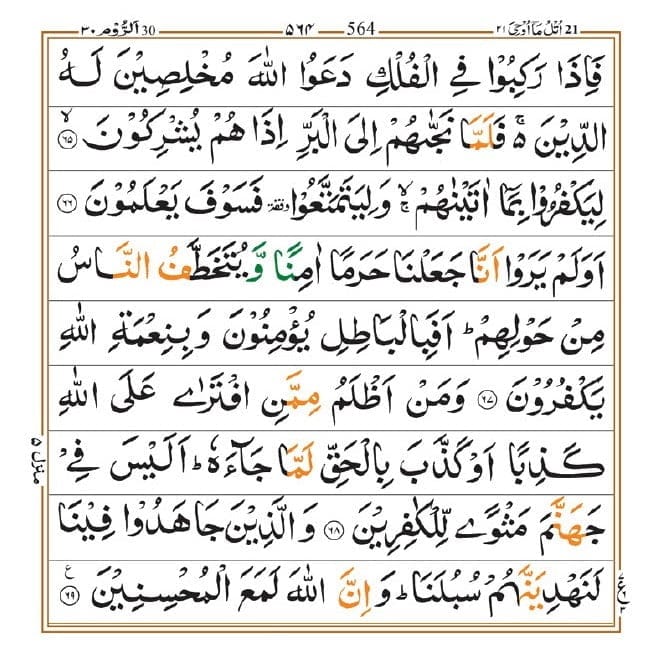 اُتْلُ مَاۤ اُوْحِیَ ٢١ 21 564 ٥٦٤ اَلرُّوْم ٣٠ 30
فَاِذَا رَكِبُوْا فِی الْفُلْكِ دَعَوُا اللّٰهَ مُخْلِصِیْنَ لَهُ
الدِّیْنَ ۚ۬ فَلَمَّا نَجّٰىهُمْ اِلَی الْبَرِّ اِذَا هُمْ یُشْرِكُوْنَ ۙ‏﴿۶۵﴾
لِیَكْفُرُوْا بِمَاۤ اٰتَیْنٰهُمْ ۙۚ وَ لِیَتَمَتَّعُوْا ۥ وقفة فَسَوْفَ یَعْلَمُوْنَ ﴿۶۶﴾
اَوَلَمْ یَرَوْا اَنَّا جَعَلْنَا حَرَمًا اٰمِنًا وَّ یُتَخَطَّفُ النَّاسُ
مِنْ حَوْلِهِمْ ؕ اَفَبِالْبَاطِلِ یُؤْمِنُوْنَ وَ بِنِعْمَةِ اللّٰهِ
یَكْفُرُوْنَ ﴿۶۷﴾ وَ مَنْ اَظْلَمُ مِمَّنِ افْتَرٰی عَلَی اللّٰهِ
كَذِبًا اَوْ كَذَّبَ بِالْحَقِّ لَمَّا جَآءَهٗ ؕ اَلَیْسَ فِیْ
جَهَنَّمَ مَثْوًی لِّلْكٰفِرِیْنَ ﴿۶۸﴾ وَ الَّذِیْنَ جَاهَدُوْا فِیْنَا
لَنَهْدِیَنَّهُمْ سُبُلَنَا ؕ وَ اِنَّ اللّٰهَ لَمَعَ الْمُحْسِنِیْنَ ﴿۶۹﴾ ع
منزل ۵